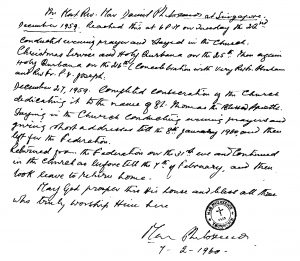 Mt Rev. Mar David Philoxenos at Singapore,
December 1959. Reached this at 6 P.M. on Tuesday the 22nd
conducted evening prayer and stayed in the Church.
Christmas Service and Holy Qurbana on the 25th. Then again
Holy Qurbana on the 26th Concelebration with Very Rev.
and Rev. Fr. P. V. Joseph.
December 27, 1959. Completed consecration of the Church
dedicating it to the name of St. Thomas the Blessed Apostle.
Staying in the Church conducting evening prayers and
giving short addresses till the 8th January 1960 and then
left for the Federation.
Returned from the Federation on the 31st eve and continued
in the Church as before till the 7th of February, and then
took leave to return home.
May God prosper this His house and bless all those
who truly worship Him here
Mar Philoxenos
7-2-1960.